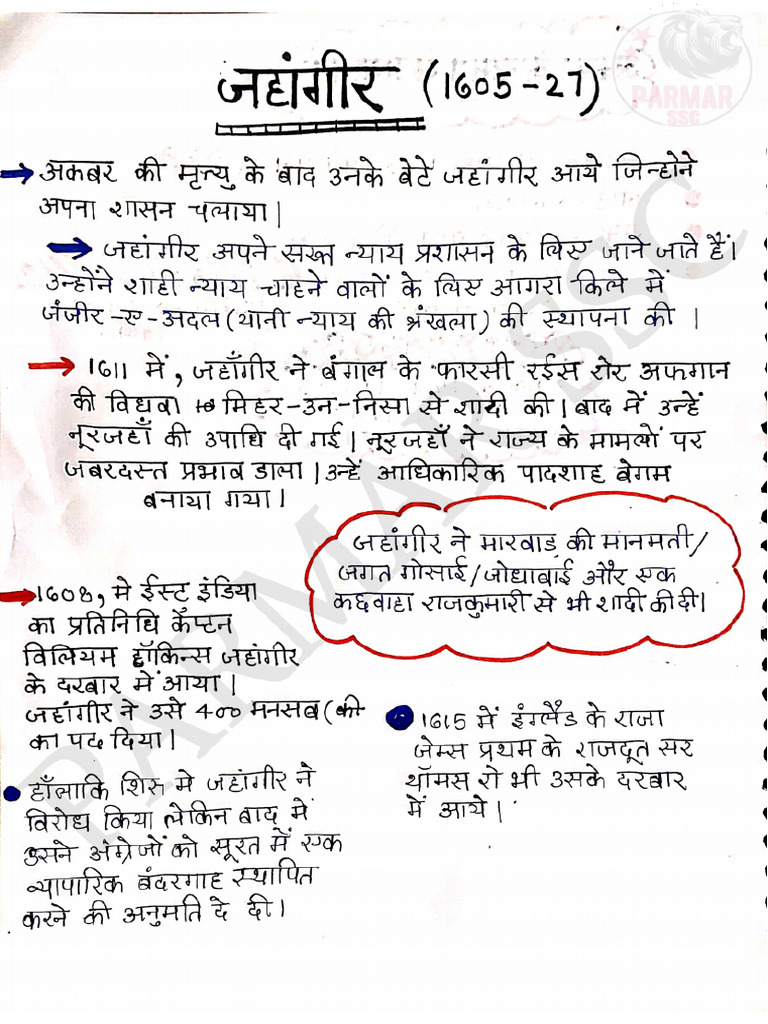 PARMAR
SSC
जहांगीर (1605-27)
→ अकबर की मृत्यु के बाद उनके बेटे जहांगीर आये जिन्होंने
अपना शासन चलाया।
→ जहांगीर अपने सख्त न्याय प्रशासन के लिए जाने जाते हैं।
उन्होंने शाही न्याय चाहने वालों के लिए आगरा किले में
जंजीर-ए-अदल (यानी न्याय की श्रंखला) की स्थापना की ।
→ 1611 में, जहाँगीर ने बंगाल के फारसी रईस शेर अफगान
की विधवा मिहर-उन-निसा से शादी की। बाद में उन्हें
नूरजहाँ की उपाधि दी गई। नूरजहाँ ने राज्य के मामलों पर
जबरदस्त प्रभाव डाला। उन्हें आधिकारिक पादशाह बेगम
बनाया गया।
जहांगीर ने मारवाड़ की मानमती/
जगत गोसाई/जोधाबाई और एक
कछवाहा राजकुमारी से भी शादी की दी।
→ 1608, मे ईस्ट इंडिया
का प्रतिनिधि कैप्टन
विलियम हॉकिन्स जहांगीर
के दरबार में आया।
जहांगीर ने उसे 400 मनसब (की
का पद दिया।
• हाँलाकि शिरु मे जहांगीर ने
विरोध किया लेकिन बाद में
उसने अंग्रेजों को सूरत में एक
व्यापारिक बंदरगाह स्थापित
करने की अनुमति दे दी।
• 1615 में इंग्लैंड के राजा
जेम्स प्रथम के राजदूत सर
थॉमस रो भी उसके दरबार
में आये।
PARMAR SSC